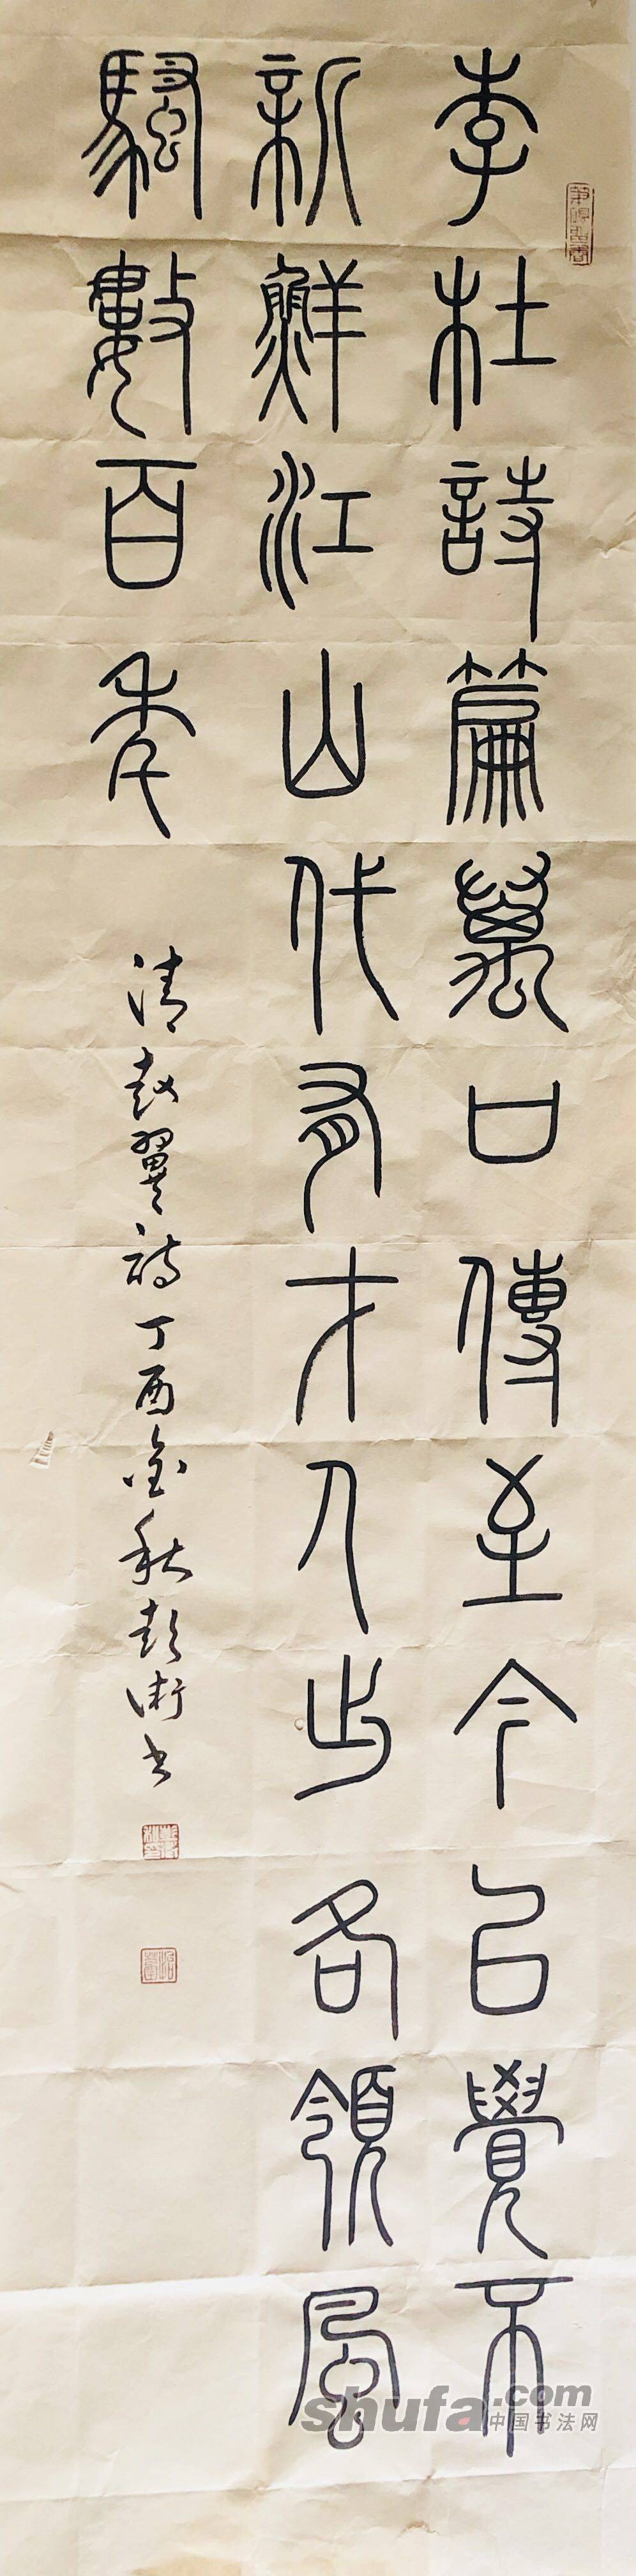 李杜詩篇萬口傳至今已覺不
新鮮江山代有才人出各領風
騷數百年
清赵翼詩丁酉金秋彭術书
shufa.com
中国书法网